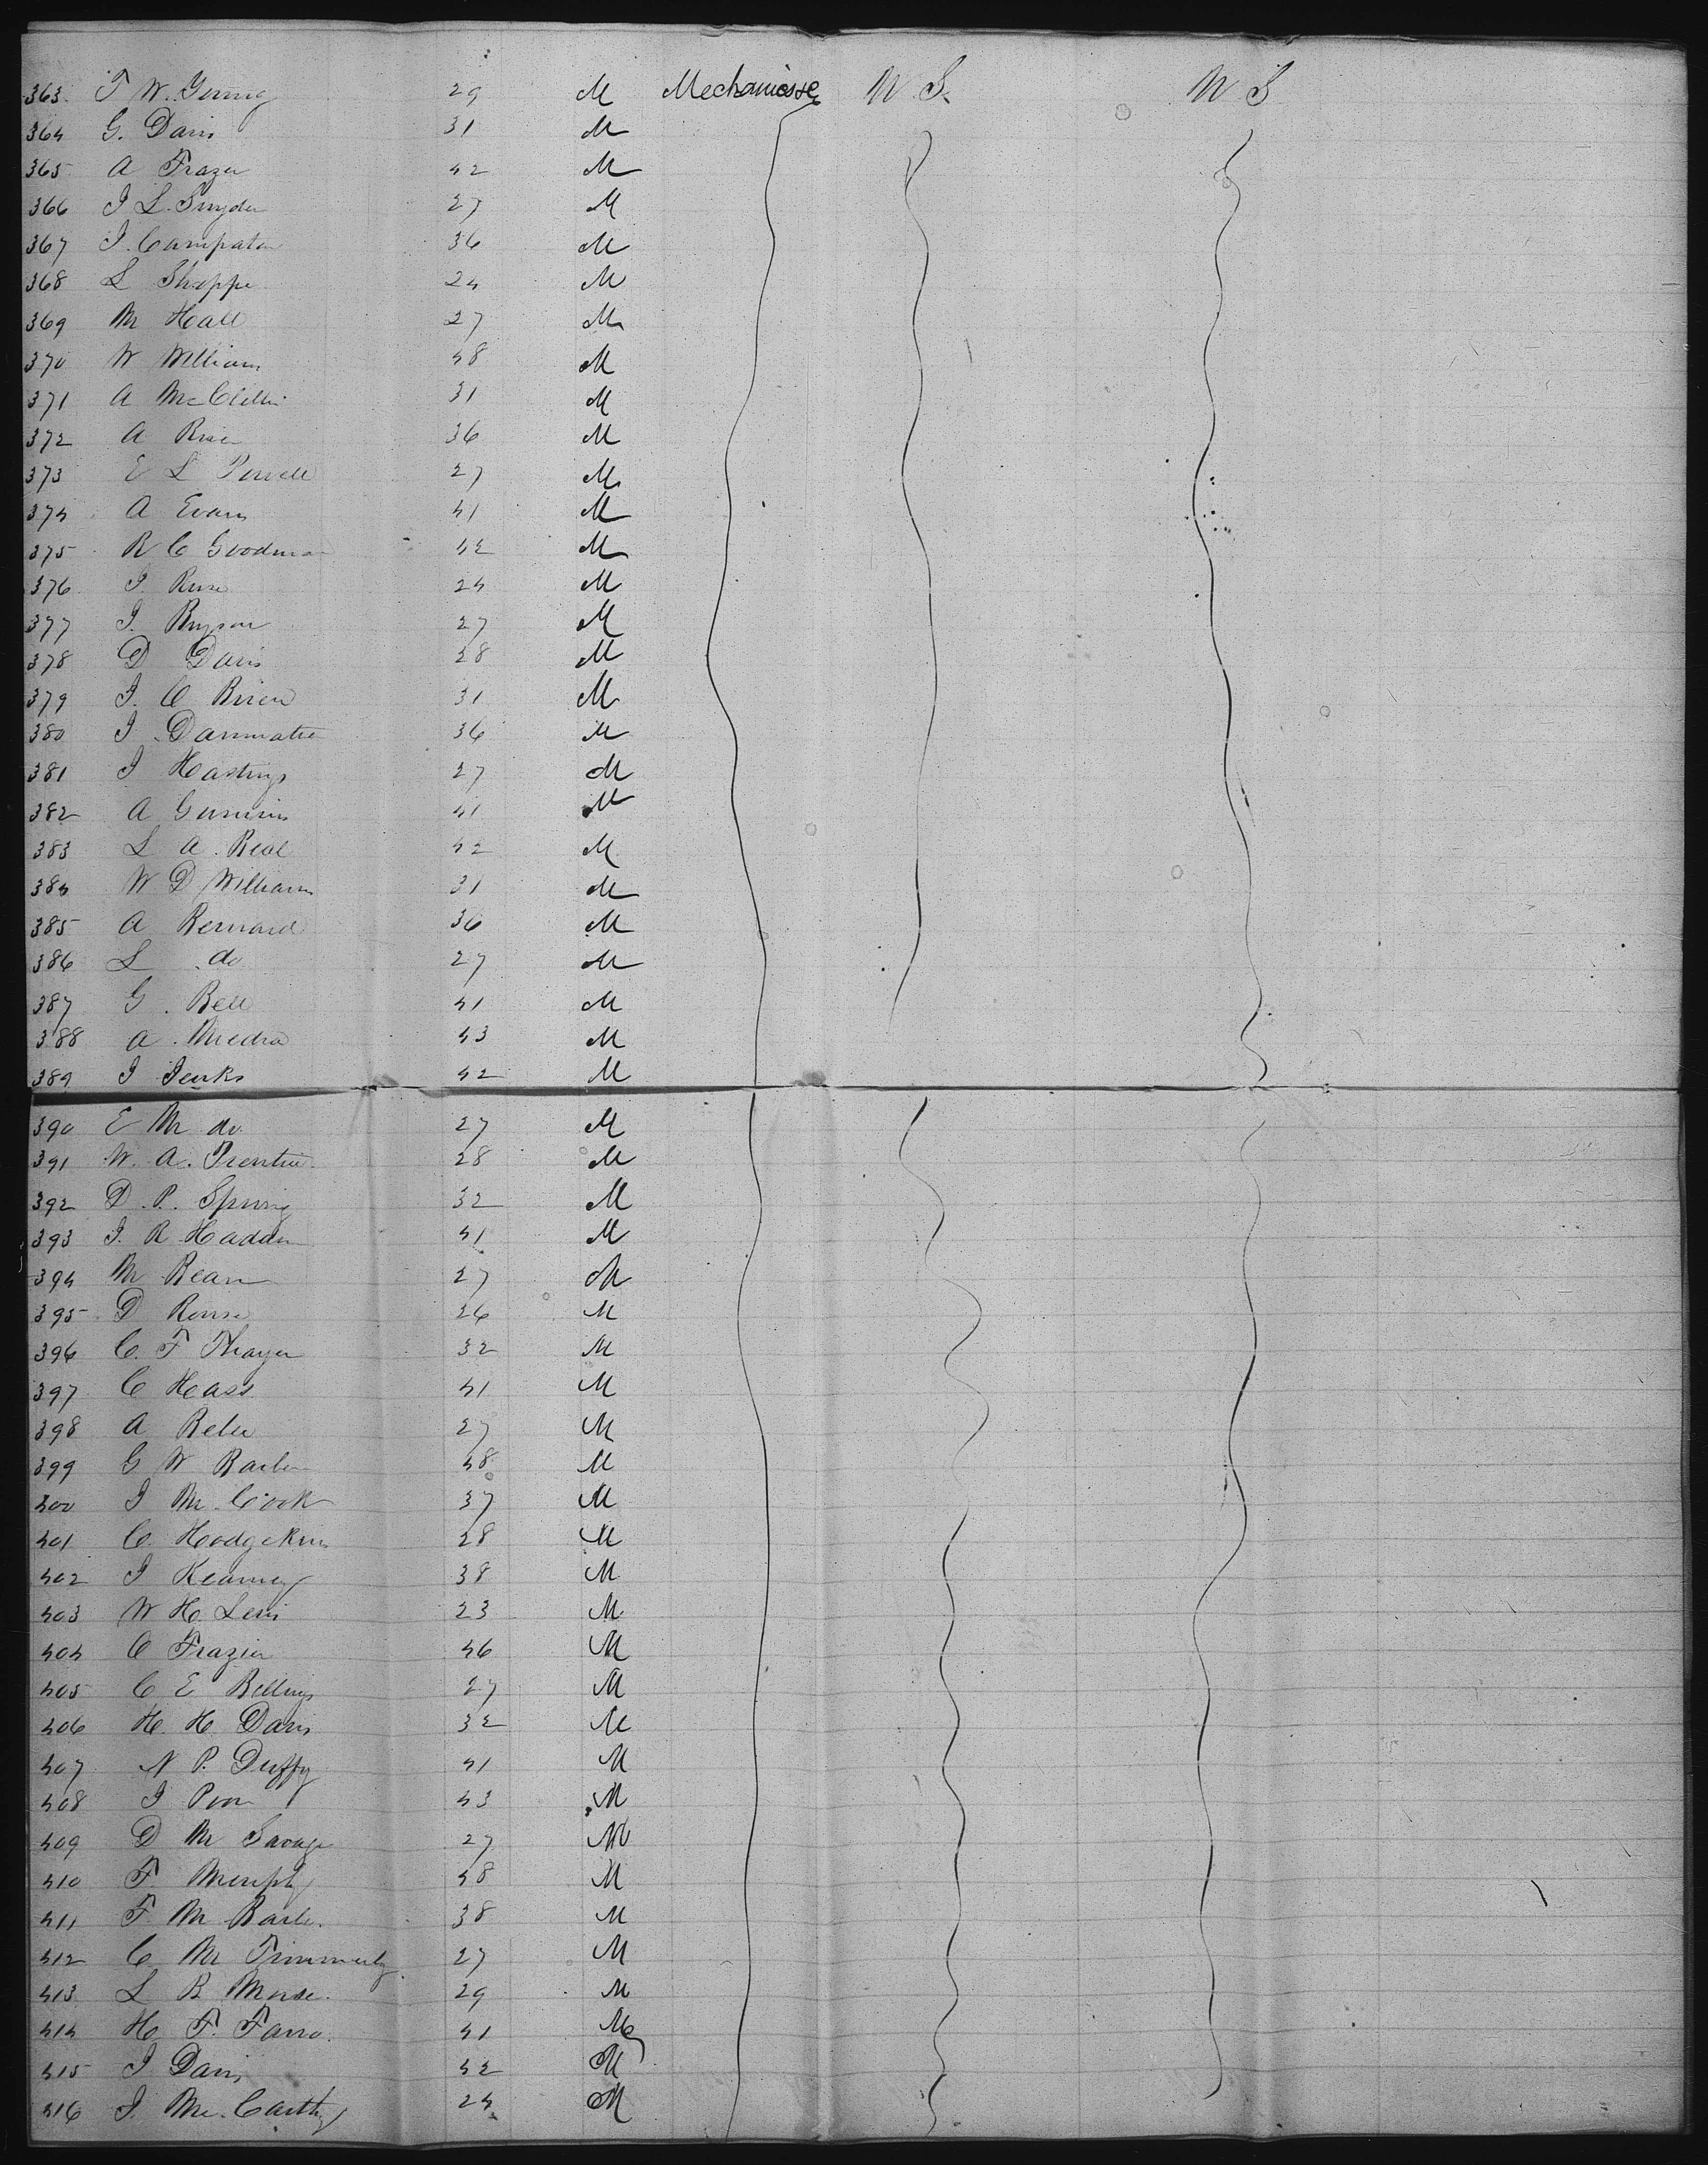 363. T W. Young 29 M Mechanics &c U S. U S
364 G. Davis 31 M
365 A Frazer 42 M
366 J L. Snyder 27 M
367 J. 36 M
368 L Shoppe 24 M
369 M Hall 27 M
370 W William 48 M
371 A 31 M
372 A 36 M
373 E L Powell 27 M
374 A Evans 41 M
375 R C Goodman 42 M
376 J. 24 M
377 J. Bryson 27 M
378 D Davis 28 M
379 J. C 31 M
380 J 36 M
381 J Hastings 27 M
382 A 41 M
383 L A. Beal 42 M
384 W D Williams 31 M
385 A Bernard 36 M
386 L do 27 M
387 G. Bell 41 M
388 A. 43 M
389 J Jenks 42 M
390 E M do. 27 M
391 W. A. 28 M
392 D. P. Spring 32 M
393 J. R Hadden 41 M
394 M Bean 27 M
395 D Rouse 26 M
396 C. F Thayer 32 M
397 C Hass 41 M
398 A 27 M
399 G W Barber 48 M
400 J M. Cook 37 M
401 C. Hodgekins 28 M
402 J Kearney 38 M
403 W H. Levi 23 M
404 C Frazier 46 M
405 C E Billings 27 M
406 H. H. Davis 32 M
407 N P. Duffy 41 M
408 J Poor 43 M
409 D M Savage 27 M
410 F Murphy 48 M
411 F M 38 M
412 C M 27 M
413 L B Morse. 29 M
414 H F. Farro. 41 M
415 J Davis 42 M
416 J. Mc. Carthy 24 M